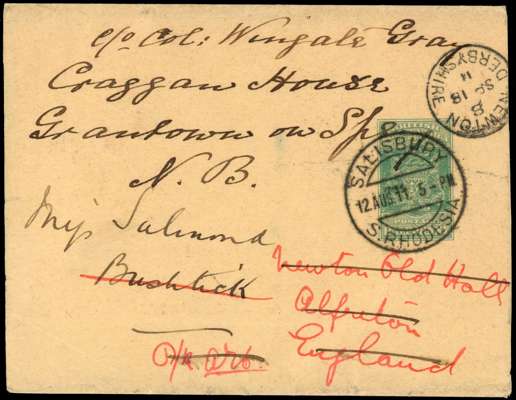 c/o Col: Wingate Gray
Craggan House
Grantown on Spe
N.B.
Miss Salmond
Bushtick
Newton Old Hall
Alfreton
England
SALISBURY
12 AUG 11 5-PM
S.RHODESIA
NEWTON
8
SP 18
11
DERBYSHIRE